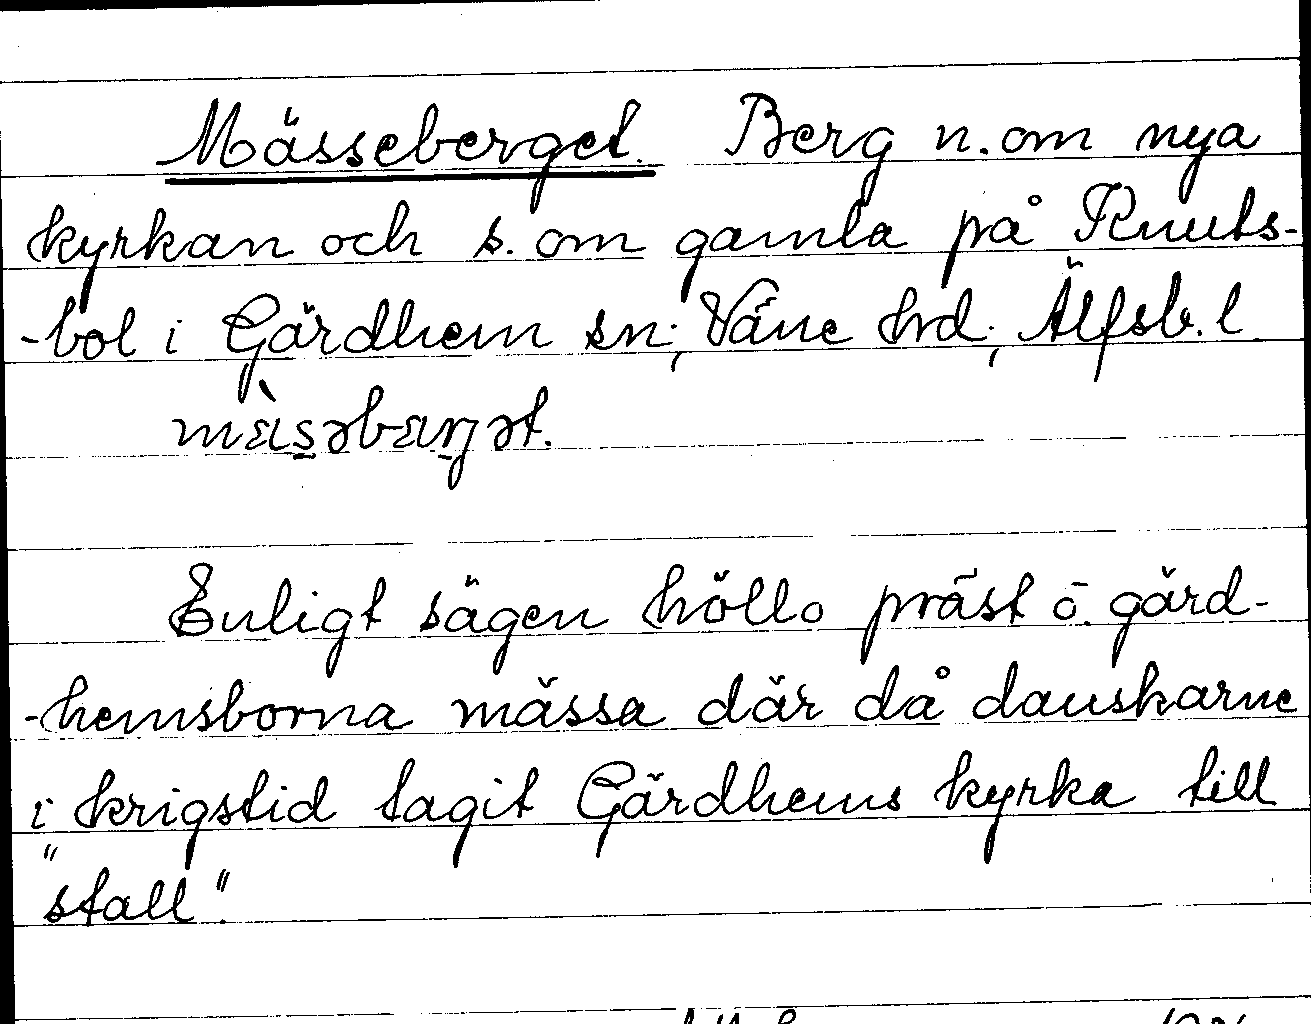 Mässeberget. Berg n. om nya
kyrkan och s. om gamla på Knuts-
-bol i Gärdhem sn; Väne hrd; Älfsb. l
Enligt sägen höllo präst o. gärd-
-hemsborna mässa där då danskarne
i krigstid tagit Gärdhems kyrka till
"stall".